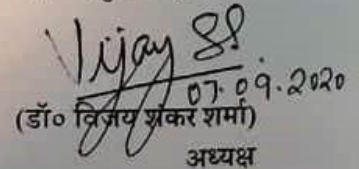 Vijay SS
07.09.2020
(डॉ० विजय शंकर शर्मा)
अध्यक्ष